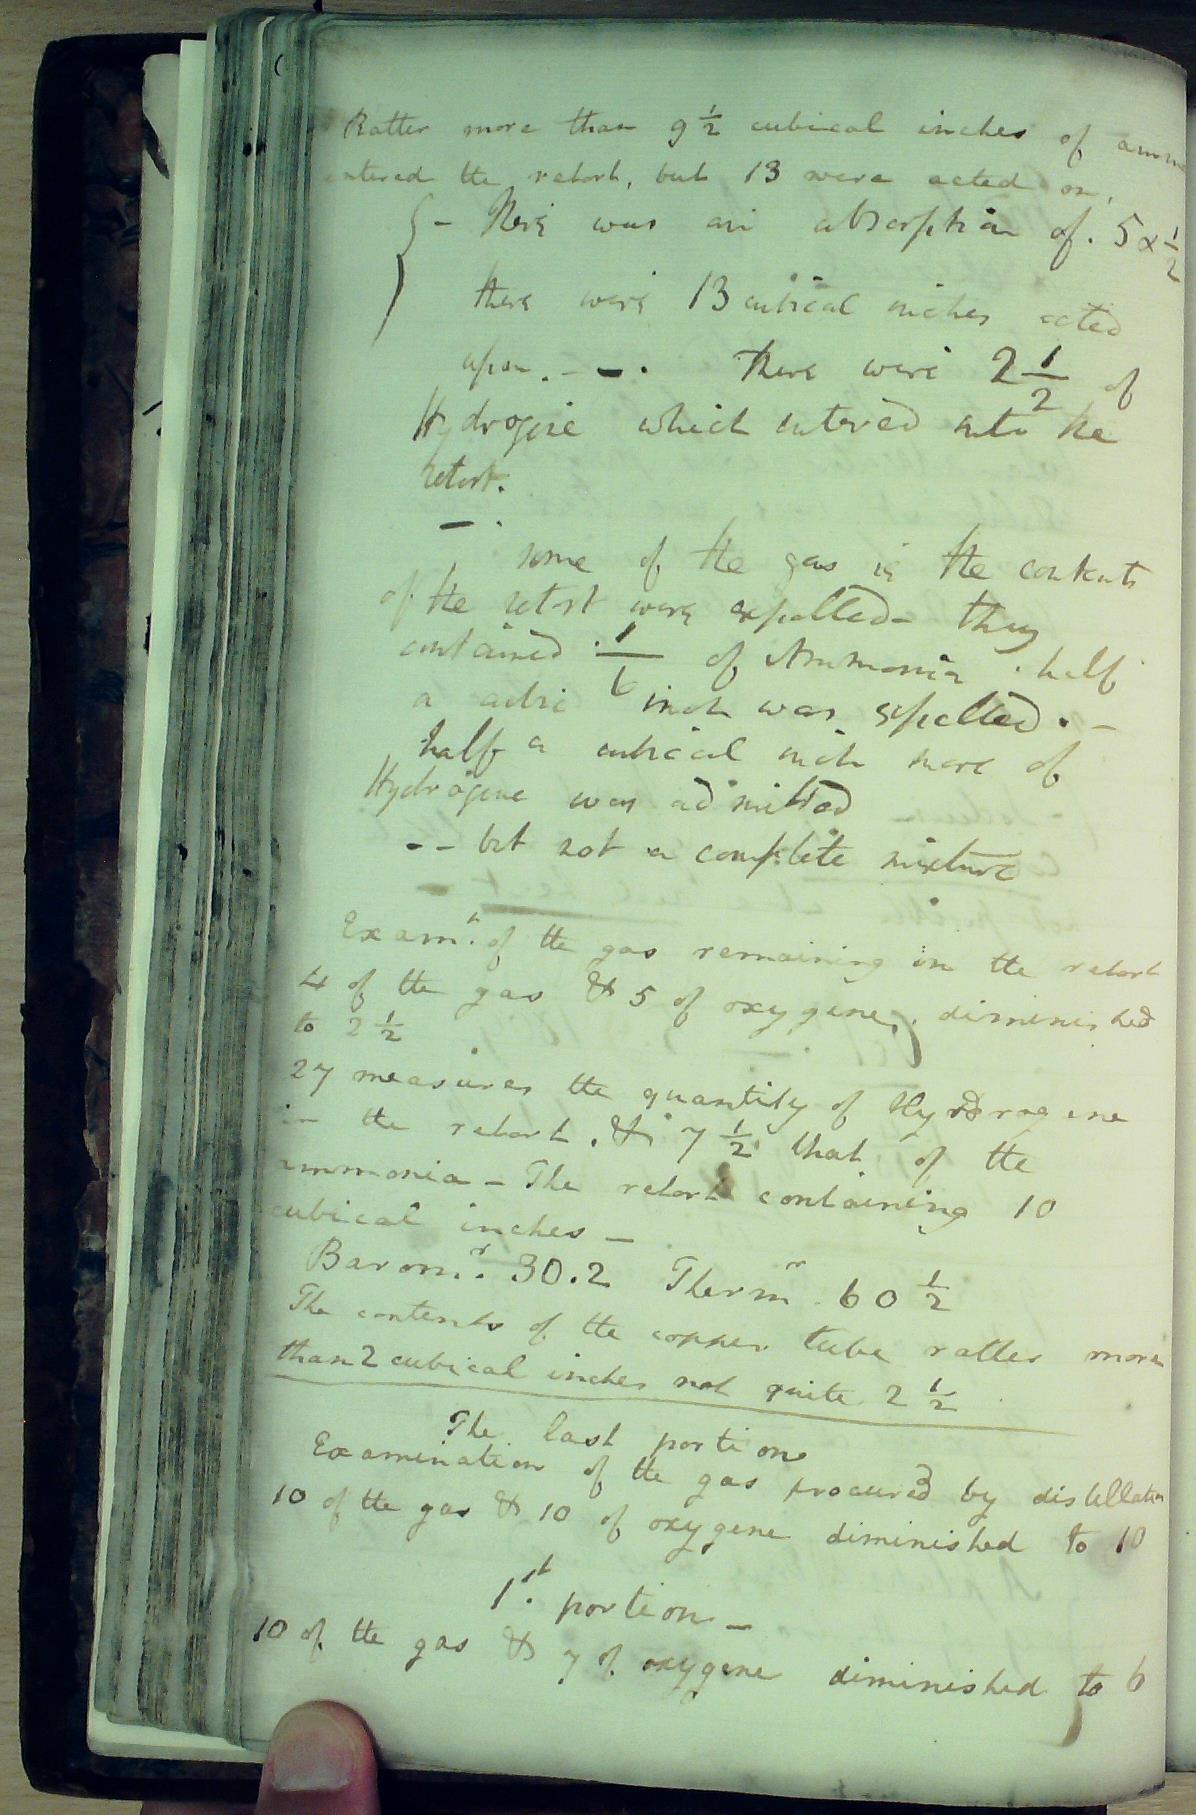 Rather more than 9 1/2 cubical inches of amm
entered the retort, but 13 were acted on.
{- there was an absorption of. 5 & 1/2
there were 13 cubical inches acted
upon. - - . There were 2 1/2 of
Hydrogene which entered into the
retort.
- .
some of the gas in the contents
of the retort were expelled - they
contained . 1/6 of Ammonia . half
a cubic inch was expelled . -
half a cubical inch more of
Hydrogene was admitted
- - but not a complete mixture
Examn. of the gas remaining in the retort
4 of the gas & 5 of oxygene, diminished
to 2 1/2
27 measures the quantity of Hydrogene
in the retort, & 7 1/2 that of the
ammonia - The retort containing 10
cubical inches -
Baromr. 30.2 Thermr. 60 1/2
The contents of the copper tube rather more
than 2 cubical inches not quite 2 1/2
The last portion
Examination of the gas procured by distillation
10 of the gas & 10 of oxygene diminished to 10
1st. portion -
10 of the gas & 7 of oxygene diminished to 6